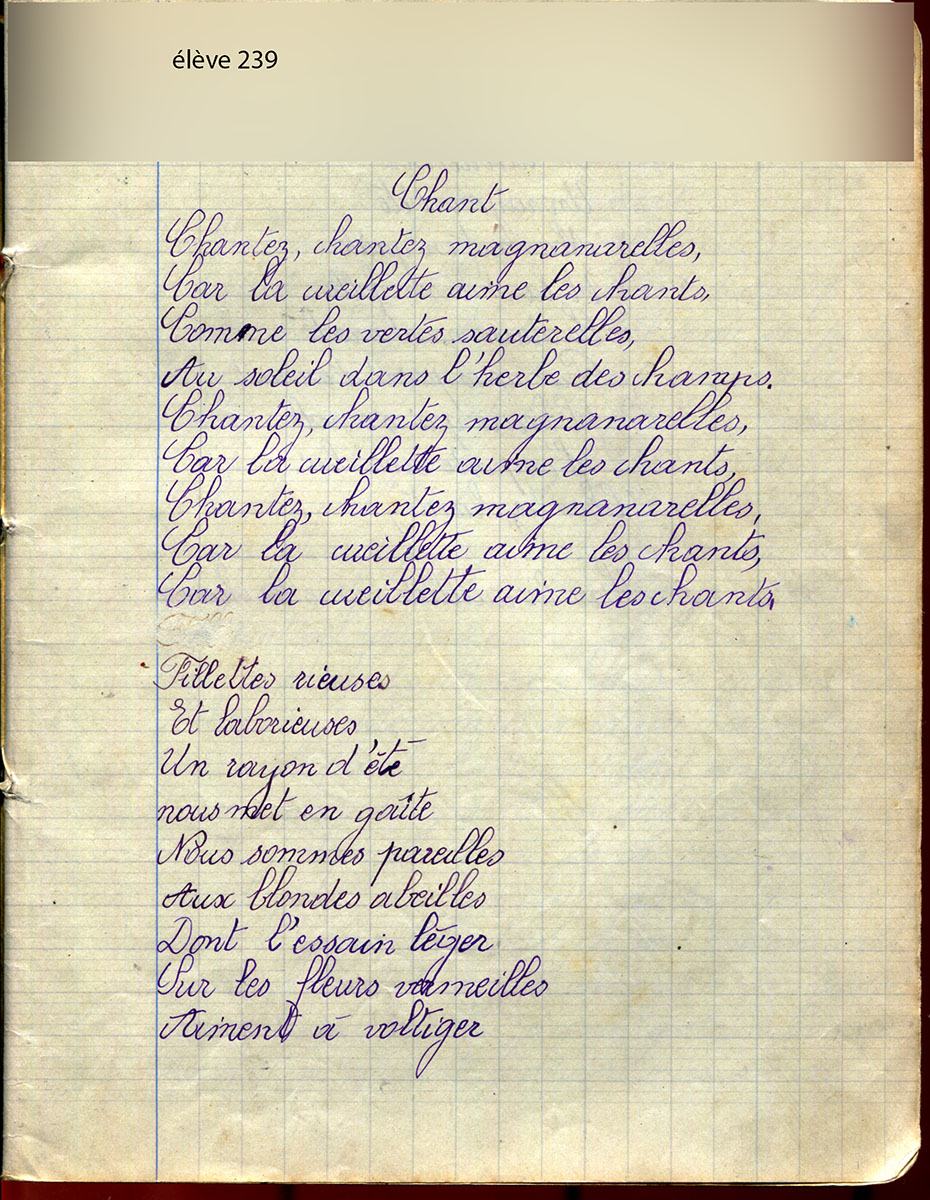 élève 239
Chant
Chantez, chantez magnanarelles,
Car la cueillette aime les chants,
Comme les vertes sauterelles,
Au soleil dans l'herbe des champs.
Chantez, chantez magnanarelles,
Car la cueillette aime les chants,
Chantez, chantez magnanarelles,
Car la cueillette aime les chants,
Car la cueillette aime les chants.
Fillettes rieuses
Et laborieuses
Un rayon d'été
nous met en gaîte
Nous sommes pareilles
Aux blondes abeilles
Dont l'essain léger
Sur les fleurs vermeilles
Aiment à voltiger